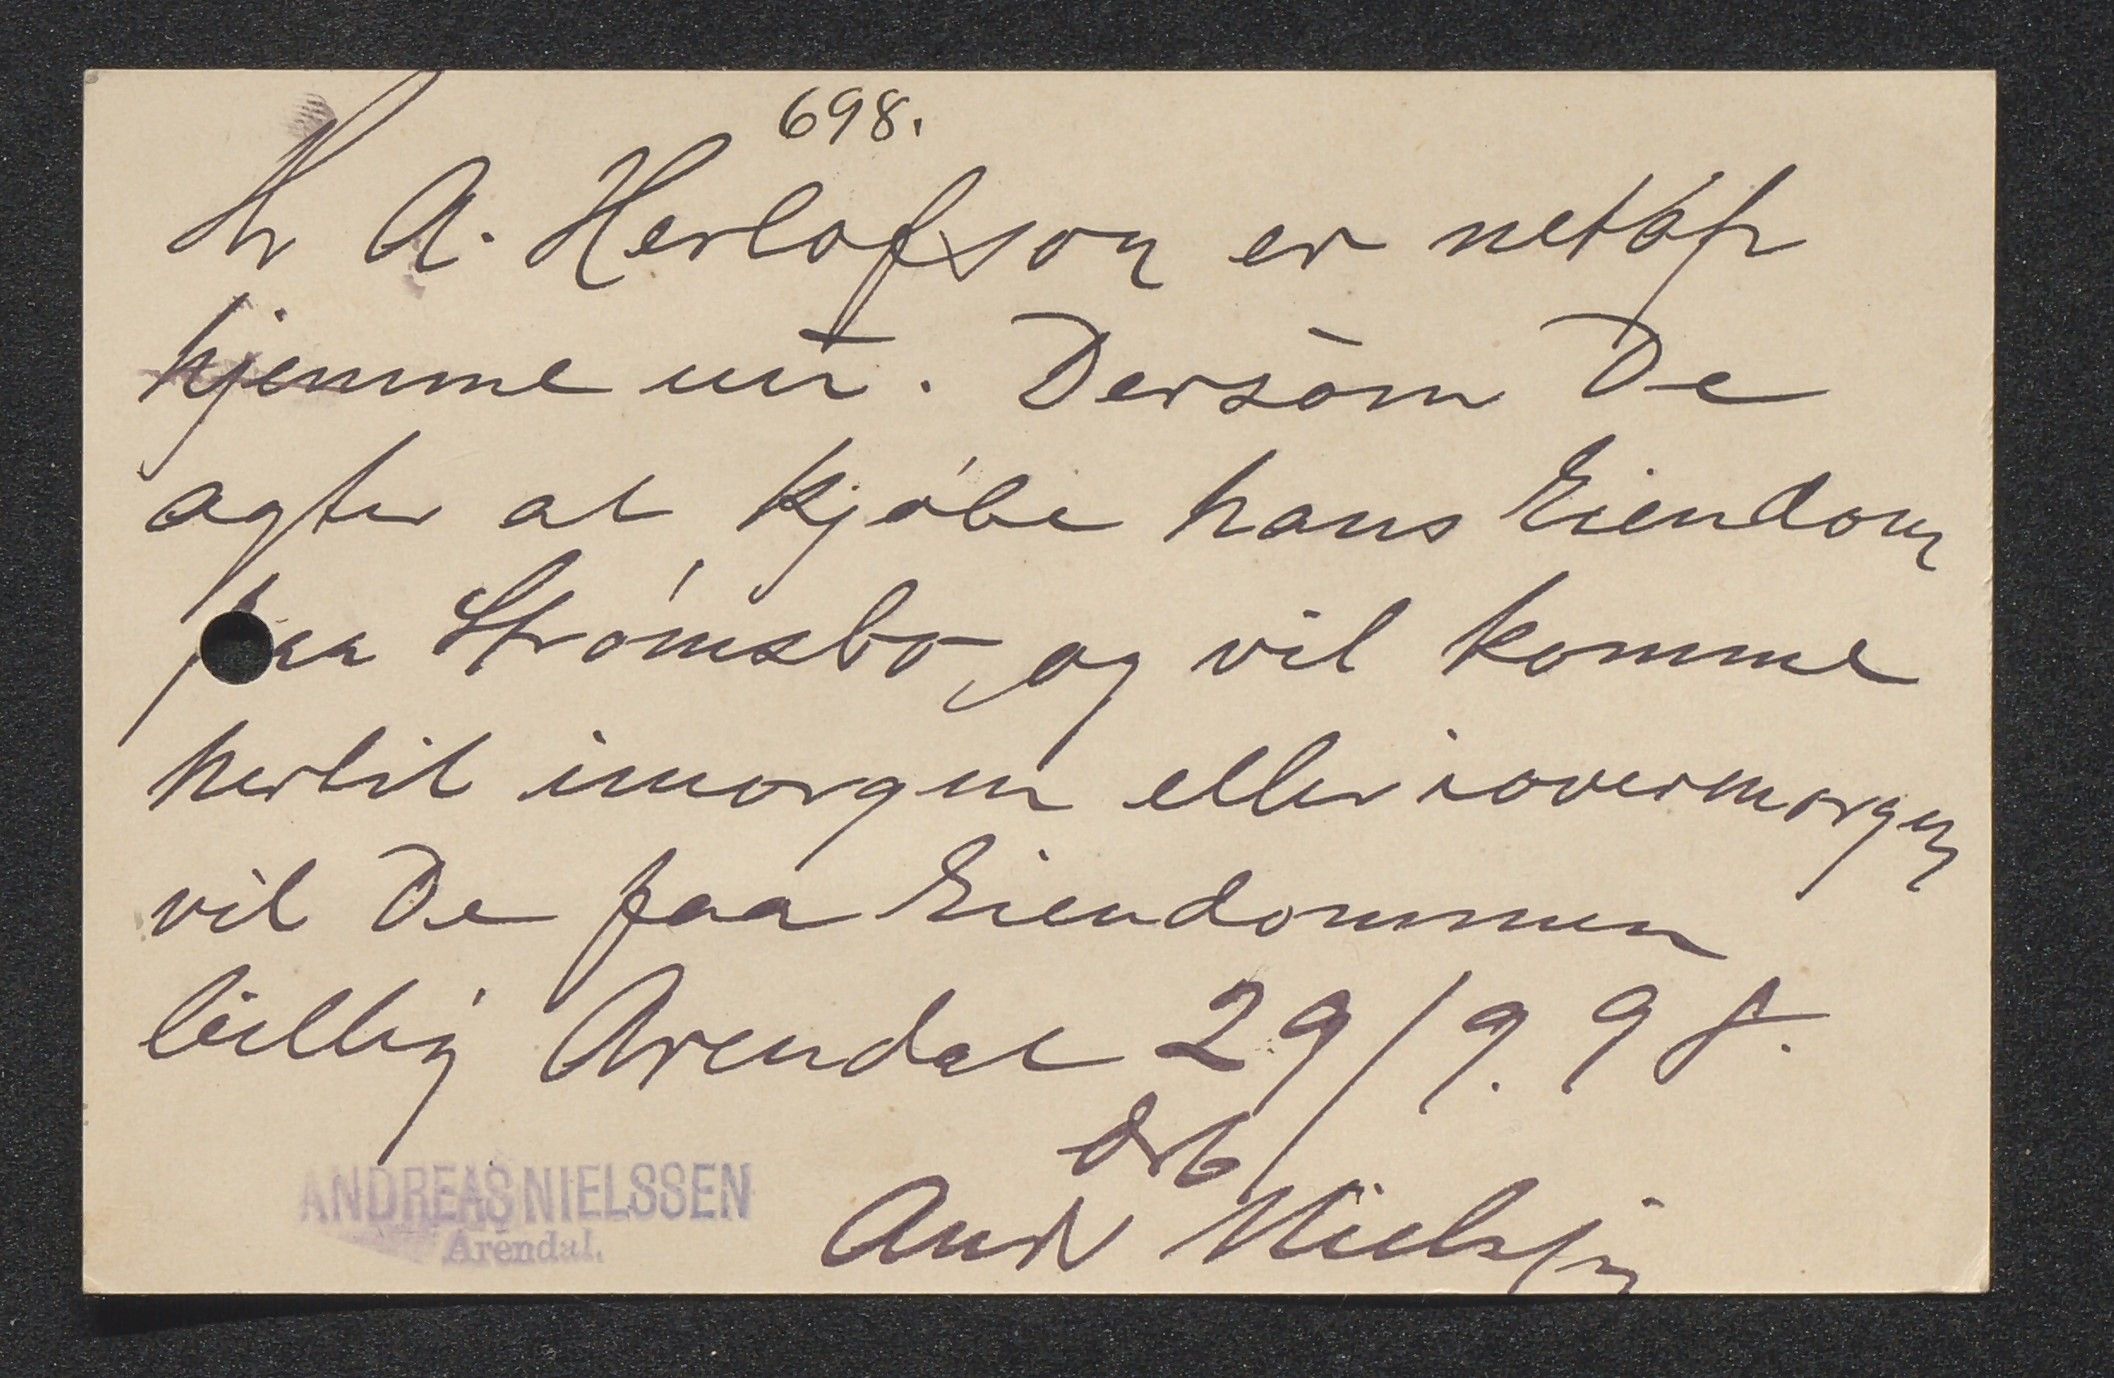 698.
Hr A. Herlofson er netop
hjemme nu. Dersom De
agter at kjøbe hans Eiendom
paa Strømsbo og vil komme
hertil imorgen eller iovermorgen
vil De faa Eiendommen
billig Arendal 29/9. 98.
Ærb
Andr Nielssen
ANDREAS NIELSSEN
Arendal.